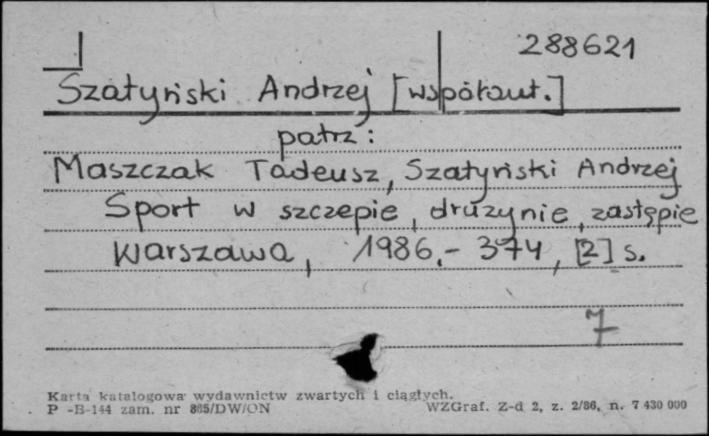 288621
Szatyński Andrzej [współaut.]
patrz:
Maszczak Tadeusz, Szatyński Andrzej
Sport w szczepie, drużynie, zastępie
Warszawa, 1986.- 374, [2] s.
7
Karta katalogowa wydawnictw zwartych i ciągłych.
P-B-144 zam. nr 885/DW/ON WZGraf. Z-d 2, z. 2/86, n. 7 430 000